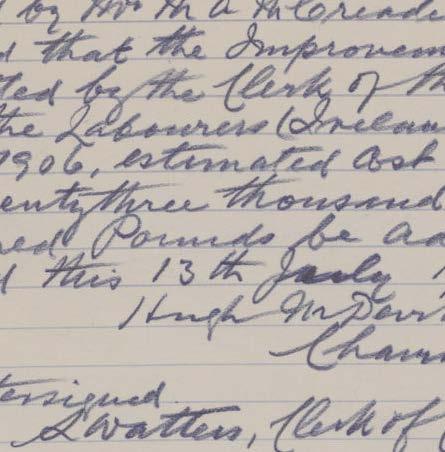 by Mr M A McCreade
d that the Improvem
ted by the Clerk of th
the Labourers (Irelan
1906, estimated Cost
entythree thousand
red Pounds be ad
d this 13th July 1
Hugh McDevit
Chair
tersigned
S Watters, Clerk of C